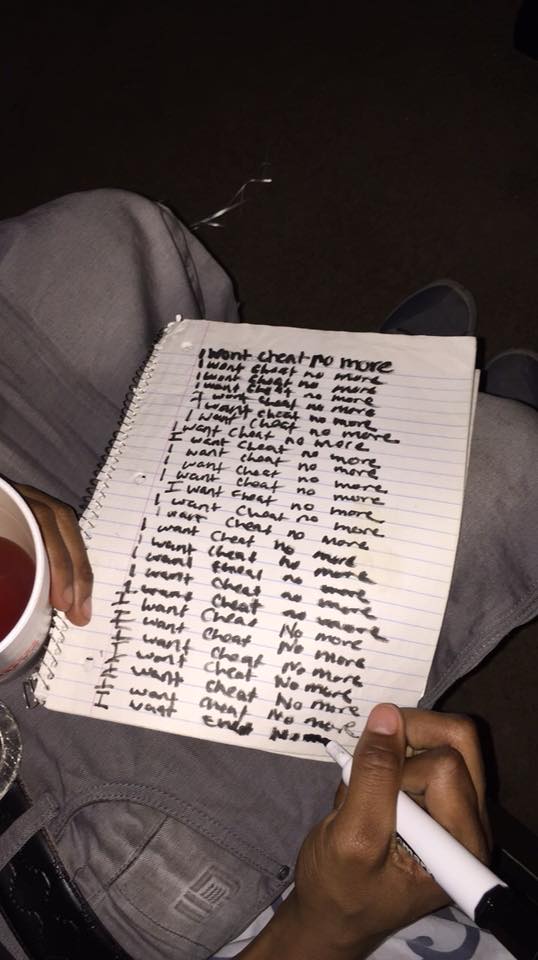 I wont cheat no more
I wont cheat no more
I wont cheat no more
I wont cheat no more
I wont cheat no more
I wont cheat no more
I wont cheat no more
I wont cheat no more
I wont cheat no more
I wont cheat no more
I wont cheat no more
I wont cheat no more
I wont cheat no more
I wont cheat no more
I wont cheat no more
I wont cheat no more
I wont cheat no more
I wont cheat no more
I wont cheat No more
I wont cheat No more
I wont cheat No more
I wont cheat No more
I wont cheat No more
I wont cheat No